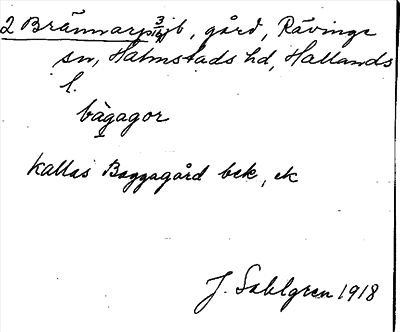 2 Brännarp 3/4 jb, gård, Rävinge
sn, Halmstads hd, Hallands
l.
bàgagor
kallas Baggagård bek, ek
J. Sahlgren 1918